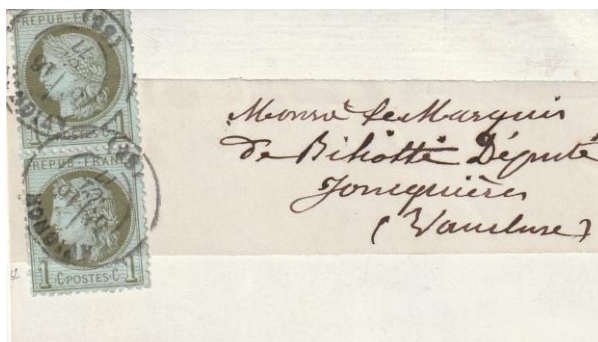 REPUB·FRANC
1 C·POSTES·C 1
REPUB·FRANC
AVIGNON
1 C·POSTES·C 1
Monsr le Marquis
de Biliotti Député
Jonquières
(Vaucluse)